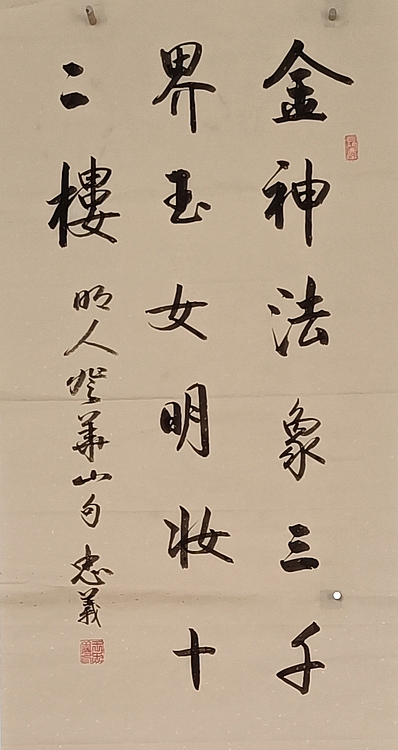 金神法象三千
界玉女明妆十
二樓
明人登華山句 忠義